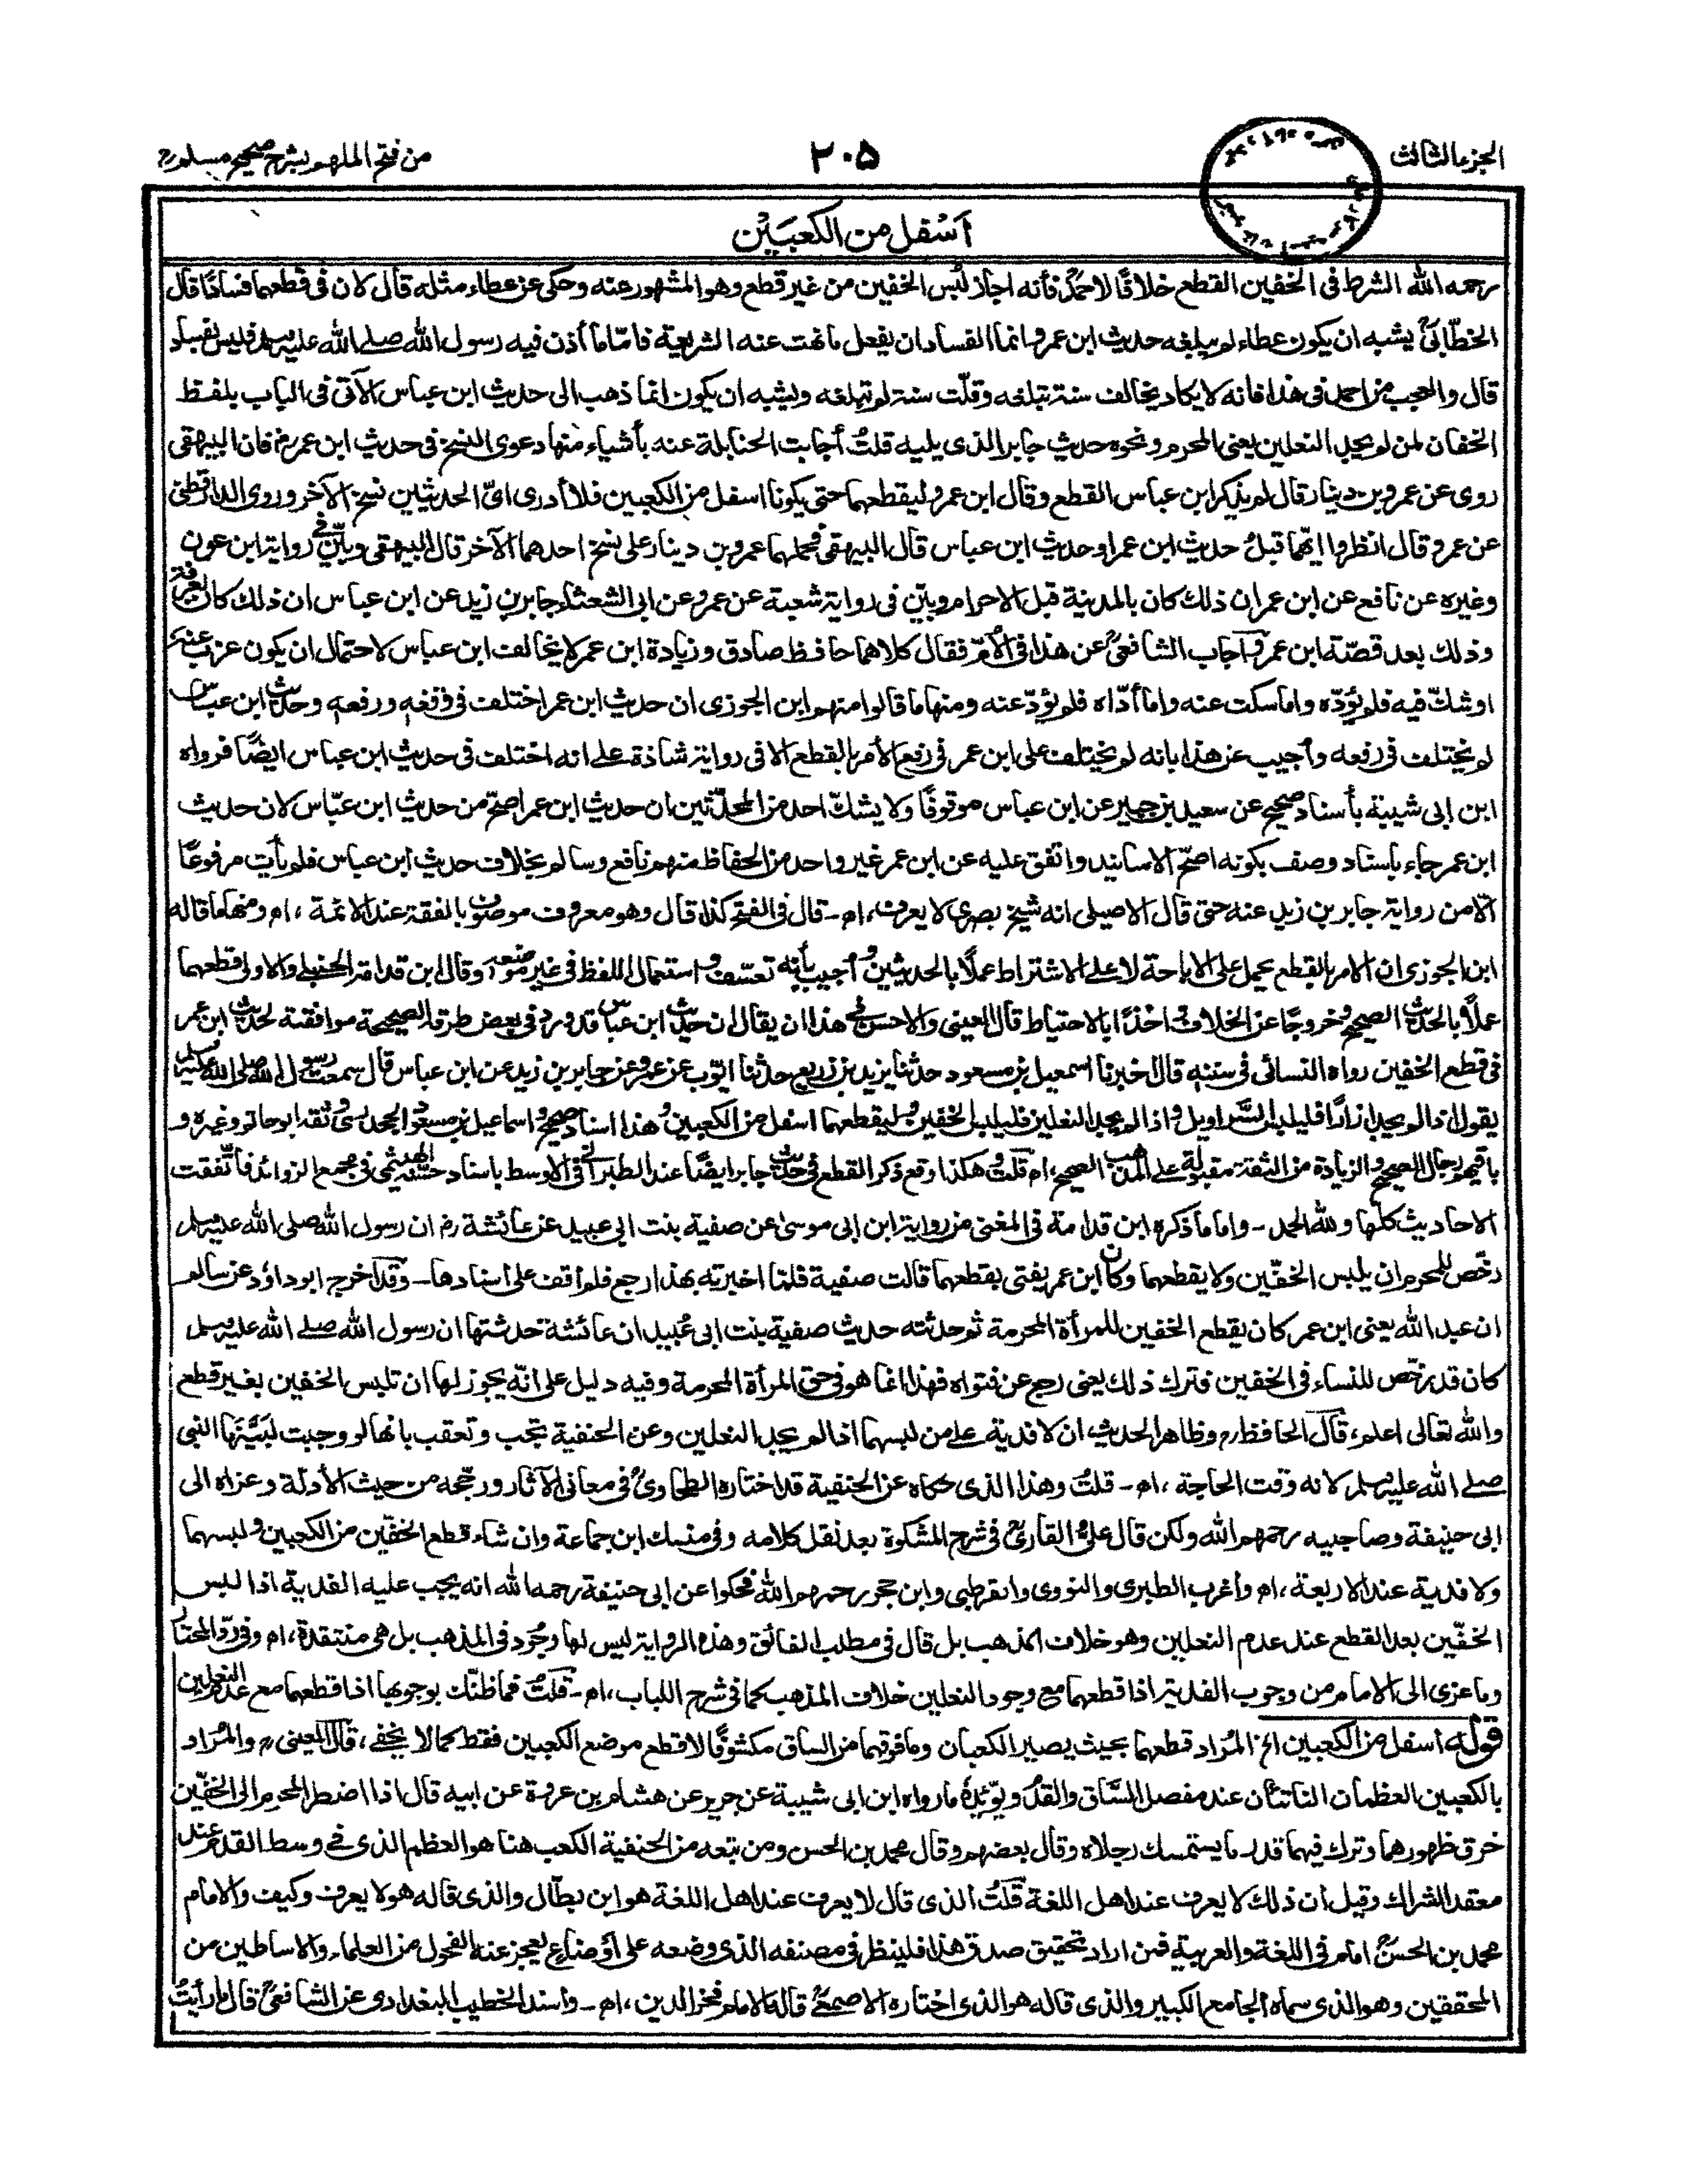 الجزء الثالث
٢٠٥
من فتح الملهم بشرح صحيح مسلم
أَسْفَل من الكَعبَيْن
رحمه الله الشرط فى الخفين القطع خلافًا لاحمد فأنه اجاز لُبس الخفين من غير قطع وهو المشهور عنه وحكى عن عطاء مثله قال لان فى قطعهما فسادًا قال
الخطّابىّ يشبه ان يكون عطاء لم يبلغه حديث ابن عمر وانما الفساد ان يفعل ما نهت عنه الشريعة فامّا ما أذن فيه رسول الله صلے الله عليه وسلم فليس بفساد
قال والعجب من احمد فى هذا فانه لا يكاد يخالف سنة تبلغه وقلّت سنة لم تبلغه ويشبه ان يكون انما ذهب الى حديث ابن عباس الآتى فى الباب بلفظ
الخفان لمن لم يجد النعلين يعنى المحرم ونحوه حديث جابر الذى يليه قلتُ أجابت الحنابلة عنه بأشياء منها دعوى النسخ فى حديث ابن عمر رض فان البيهقى
روى عن عمرو بن دينار قال لم يذكر ابن عباس القطع وقال ابن عمر وليقطعهما حتى يكونا اسفل من الكعبين فلا أدرى اىّ الحديثين نسخ الآخر وروى الدارقطنى
عن عمرو قال انظروا ايّهما قبلُ حديث ابن عمر او حديث ابن عباس قال البيهقى فحملهما عمرو بن دينار على نسخ احدهما الآخر قال البيهقى وبيّن فى رواية ابن عون
وغيره عن نافع عن ابن عمر ان ذلك كان بالمدينة قبل الاحرام وبيّن فى رواية شعبة عن عمرو عن ابى الشعثاء جابر بن زيد عن ابن عباس ان ذلك كان بعرفة
وذلك بعد قصّة ابن عمر وأجاب الشافعىّ عن هذا فى الأمّ فقال كلاهما حافظ صادق وزيادة ابن عمر لا يخالف ابن عباس لاحتمال ان يكون عزب عنه
او شكّ فيه فلم يؤدّه واما سكت عنه واما أدّاه فلم يؤدّ عنه ومنها ما قالوا منهم ابن الجوزى ان حديث ابن عمر اختلف فى وقفه ورفعه وحديث ابن عباس
لم يختلف فى رفعه وأجيب عن هذا بانه لم يختلف على ابن عمر فى رفع الأمر بالقطع الا فى رواية شاذة على انه اختلف فى حديث ابن عباس ايضًا فرواه
ابن ابى شيبة بأسناد صحيح عن سعيد بن جبير عن ابن عباس موقوفًا ولا يشكّ احد من المحدّثين ان حديث ابن عمر اصحّ من حديث ابن عبّاس لان حديث
ابن عمر جاء باسناد وصف بكونه اصحّ الاسانيد واتفق عليه عن ابن عمر غير واحد من الحفاظ منهم نافع وسالم بخلاف حديث ابن عباس فلم يأت مرفوعًا
الّا من رواية جابر بن زيد عنه حتى قال الاصيلى انه شيخ بصرى لا يعرف، ام - قال فى الفتح كذا قال وهو معروف موصوف بالفقه عند الائمة، ام ومنها ما قاله
ابن الجوزى ان الامر بالقطع يحمل على الاباحة لا على الاشتراط عملًا بالحديثين وأجيب بأنه تعسّف و استعمال اللفظ فى غير موضعه وقال ابن قدامة الحنبلى والاولى قطعهما
عملًا بالحديث الصحيح وخروجًا عن الخلاف واخذًا بالاحتياط قال العينى والاحسن فى هذا ان يقال ان حديث ابن عباس قد ورد فى بعض طرقه الصحيحة موافقته لحديث ابن عمر
فى قطع الخفين رواه النسائى فى سننه قال اخبرنا اسمعيل بن مسعود حدثنا يزيد بن زريع حدثنا ايّوب عن عمرو عن جابر بن زيد عن ابن عباس قال سمعت رسول الله صلى الله عليه وسلم
يقول اذا لم يجد ازارًا فليلبس السّراويل واذا لم يجد النعلين فليلبس الخفين وليقطعهما اسفل من الكعبين وهذا اسناد صحيح واسماعيل بن مسعود الجحدرى وثقه ابو حاتم وغيره و
باقيهم رجال الصحيح والزيادة من الثقة مقبولة على المذهب الصحيح، ام قلتُ وهكذا وقع ذكر القطع فى حديث جابر ايضًا عند الطبرانى فى الاوسط باسناد حسّنه الهيثمى فى مجمع الزوائد فأتّفقت
الاحاديث كلّها ولله الحمد - واما ما ذكره ابن قدامة فى المغنى من رواية ابن ابى موسى عن صفية بنت ابى عبيد عن عائشة رض ان رسول الله صلى الله عليه وسلم
رخّص للمحرم ان يلبس الخفّين ولا يقطعهما وكان ابن عمر يفتى بقطعهما قالت صفية فلمّا اخبرته بهذا رجع فلم اقف على اسنادها - وقد اخرج ابو داؤد عن سالم
ان عبد الله يعنى ابن عمر كان يقطع الخفين للمرأة المحرمة ثم حدثته حديث صفية بنت ابى عُبيد ان عائشة حدثتها ان رسول الله صلے الله عليه وسلم
كان قد رخّص للنساء فى الخفين فترك ذلك يعنى رجع عن فتواه فهذا انما هو فى حق المرأة المحرمة وفيه دليل على انّه يجوز لها ان تلبس الخفين بغير قطع
والله تعالى اعلم، قال الحافظ رح وظاهر الحديث ان لا فدية على من لبسهما اذا لم يجد النعلين وعن الحنفية تجب وتعقب بانها لو وجبت لبيّنها النبى
صلے الله عليه وسلم لانه وقت الحاجة، ام - قلتُ وهذا الذى حكاه عن الحنفية قد اختاره الطحاوىّ فى معانى الآثار ورجّحه من حيث الأدلّة وعزاه الى
ابى حنيفة وصاحبيه رحمهم الله ولكن قال علىّ القارىّ فى شرح المشكوة بعد نقل كلامه وفى منسك ابن جماعة وان شاء قطع الخفّين من الكعبين ولبسهما
ولا فدية عند الاربعة، ام وأغرب الطبرى والنووى والقرطبى وابن حجر رحمهم الله فحكوا عن ابى حنيفة رحمه الله انه يجب عليه الفدية اذا لبس
الخفّين بعد القطع عند عدم النعلين وهو خلاف المذهب بل قال فى مطلب الفائق وهذه الرواية ليس لها وجود فى المذهب بل هى منتقدة، ام وفى ردّ المحتار
وما عزى الى الامام من وجوب الفدية اذا قطعهما مع وجود النعلين خلاف المذهب كما فى شرح اللباب، ام - قلتُ فما ظنّك بوجوبها اذا قطعهما مع عدم النعلين
قولُه أسفل من الكعبين الخ المُراد قطعهما بحيث يصير الكعبان وما فوقهما من الساق مكشوفًا لا قطع موضع الكعبين فقط كما لا يخفى، قال العينى رح والمُراد
بالكعبين العظمان الناتئان عند مفصل السّاق والقدم ويؤيّده ما رواه ابن ابى شيبة عن جرير عن هشام بن عروة عن ابيه قال اذا اضطر المحرم الى الخفّين
خرق ظهورهما وترك فيهما قدر ما يستمسك رجلاه وقال بعضهم وقال محمد بن الحسن ومن تبعه من الحنفية الكعب هنا هو العظم الذى فى وسط القدم عند
معقد الشراك وقيل ان ذلك لا يعرف عند اهل اللغة قلتُ الذى قال لا يعرف عند اهل اللغة هو ابن بطّال والذى قاله هو لا يعرف وكيف والامام
محمد بن الحسن امام فى اللغة والعربية فمن اراد تحقيق صدق هذا فلينظر فى مصنفه الذى وضعه على أوضاع يعجز عنه الفحول من العلماء والاساطين من
المحققين وهو الذى سماه الجامع الكبير والذى قاله هو الذى اختاره الاصمعىّ قاله الامام فخر الدين، ام - وأسند الخطيب البغدادى عن الشافعىّ قال ما رأيتُ